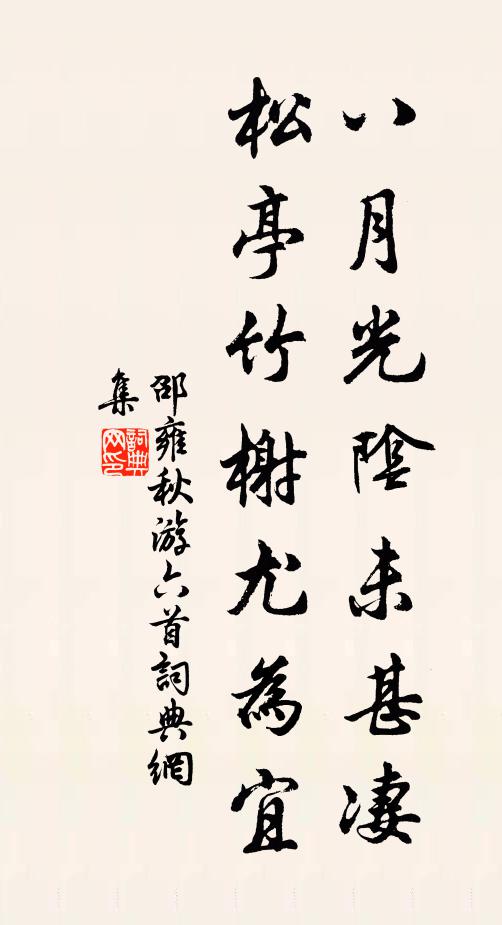 八月光陰未甚凄
松亭竹榭尤為宜
邵雍秋游六首詞典網
集
詞典網印